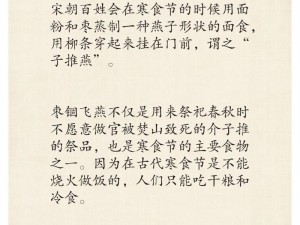 宋朝百姓会在寒食节的时候用面
粉和枣蒸制一种燕子形状的面食，
用柳条穿起来挂在门前，谓之“
子推燕”。
枣锢飞燕不仅是用来祭祀春秋时
不愿意做官被焚山致死的介子推
的祭品，也是寒食节的主要食物
之一。因为在古代寒食节是不能
烧火做饭的，人们只能吃干粮和
冷食。